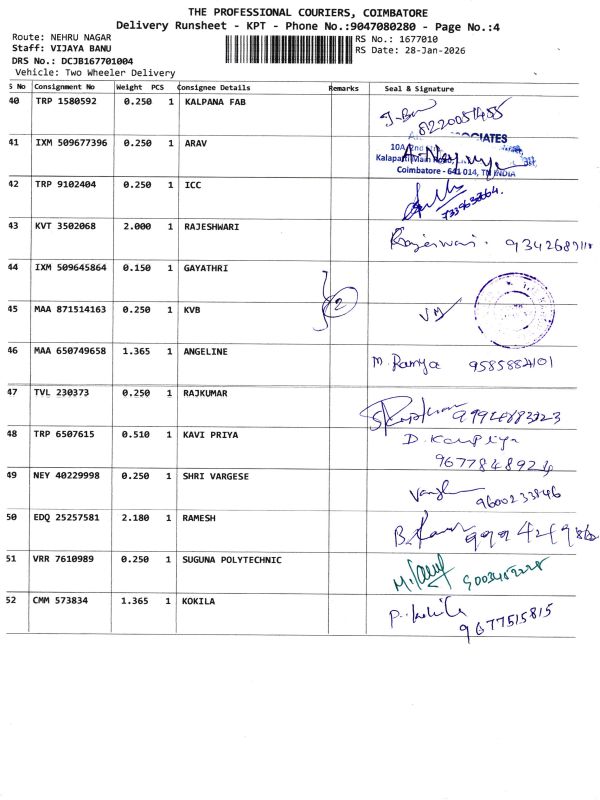 THE PROFESSIONAL COURIERS, COIMBATORE
Delivery Runsheet - KPT - Phone No.:9047080280 - Page No.:4
Route: NEHRU NAGAR
RS No.: 1677010
Staff: VIJAYA BANU
RS Date: 28-Jan-2026
DRS No.: DCJB167701004
Vehicle: Two Wheeler Delivery
S No Consignment No Weight PCS Consignee Details Remarks Seal & Signature
40 TRP 1580592 0.250 1 KALPANA FAB
41 IXM 509677396 0.250 1 ARAV
Coimbatore - 641 014, TN INDIA
42 TRP 9102404 0.250 1 ICC
43 KVT 3502068 2.000 1 RAJESHWARI
44 IXM 509645864 0.150 1 GAYATHRI
2
45 MAA 871514163 0.250 1 KVB
46 MAA 650749658 1.365 1 ANGELINE M. Ramya 9585884101
47 TVL 230373 0.250 1 RAJKUMAR
48 TRP 6507615 0.510 1 KAVI PRIYA
49 NEY 40229998 0.250 1 SHRI VARGESE
9600233846
50 EDQ 25257581 2.180 1 RAMESH
51 VRR 7610989 0.250 1 SUGUNA POLYTECHNIC
52 CMM 573834 1.365 1 KOKILA
9677515815